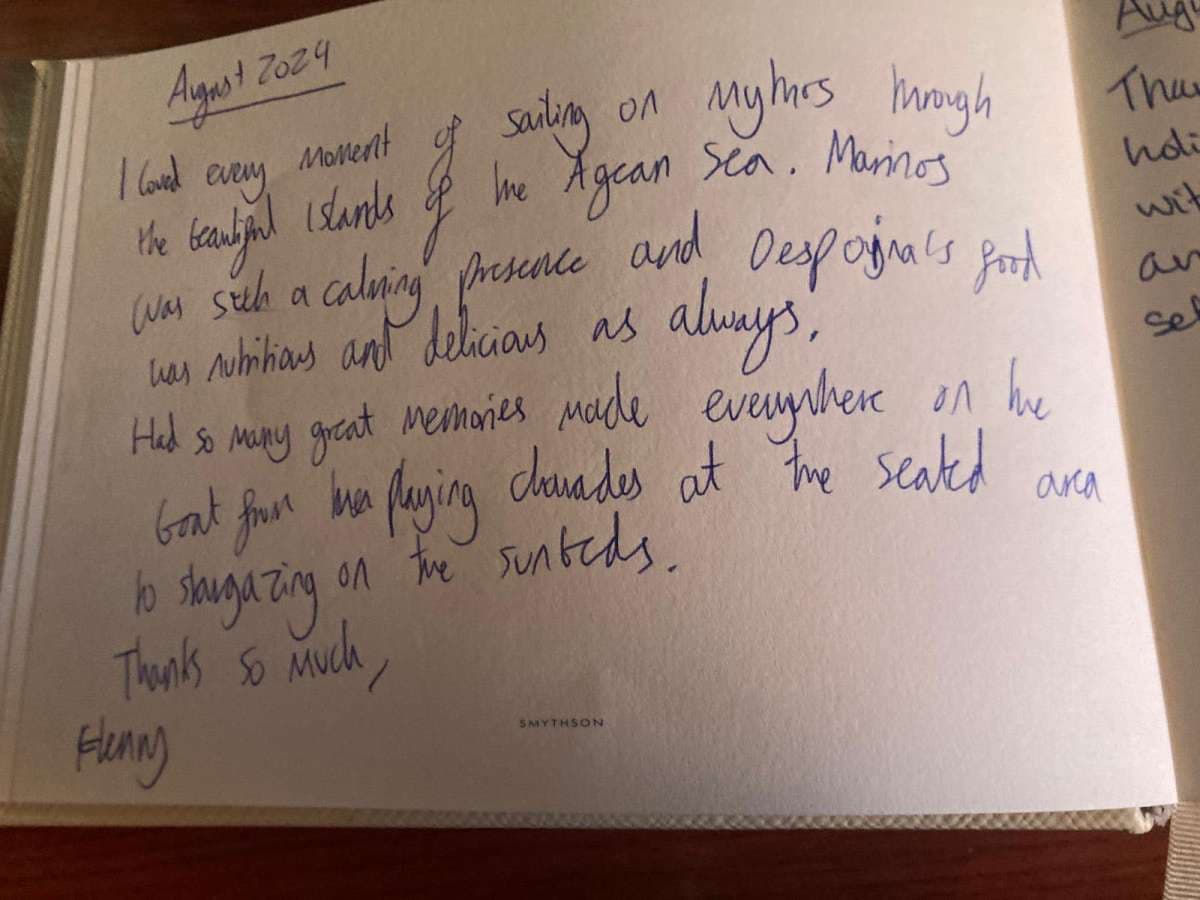 August 2024
I loved every moment of sailing on Mythos through
the beautiful islands of the Agean Sea. Marinos
was such a calming presence and Despoina's food
was nutritious and delicious as always.
Had so many great memories made everywhere on the
boat from playing charades at the seated area
to stargazing on the sunbeds.
Thanks so much,
SMYTHSON
Augu
Than
holi
wit
an
sel